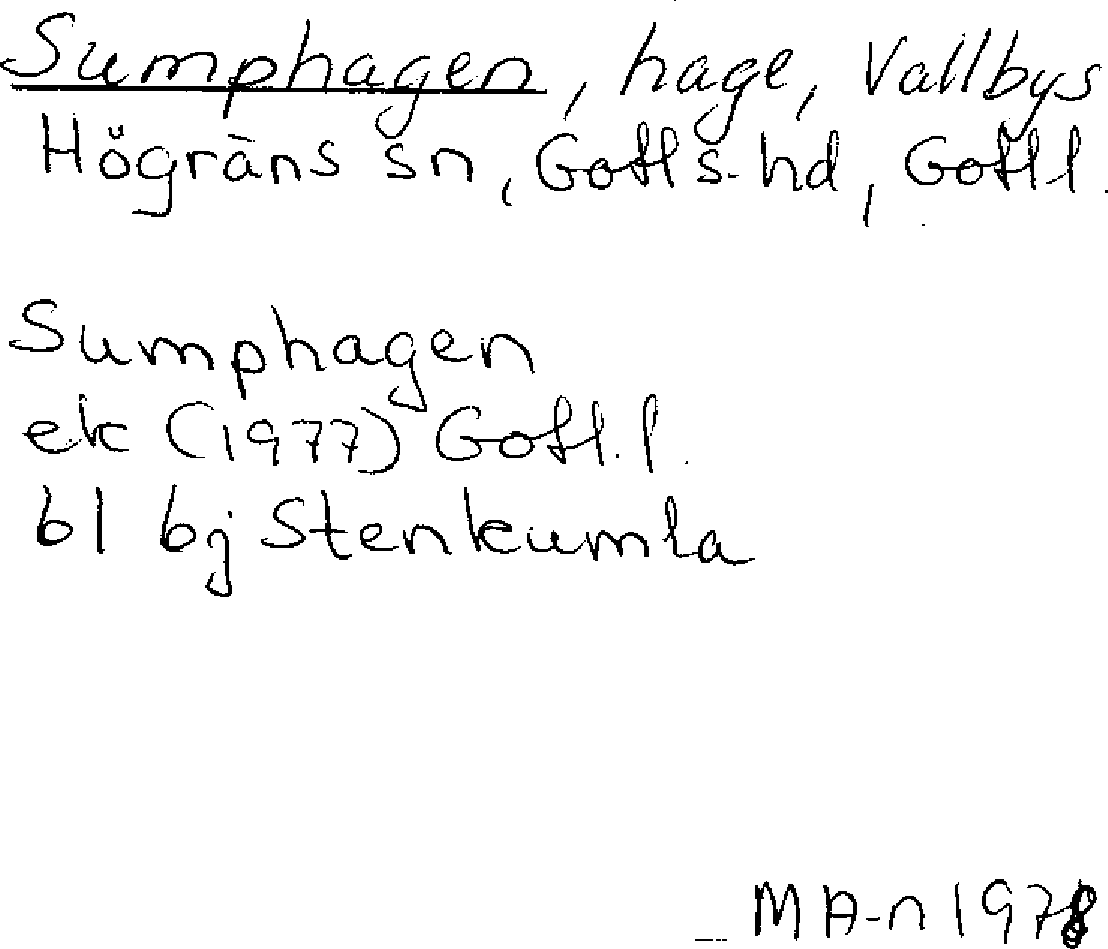 Sumphagen, hage, Vallbys
Högräns sn, Gotls. hd, Gotl l.
Sumphagen
ek (1977) Gotl. l.
bl bj Stenkumla
MA-n 1978